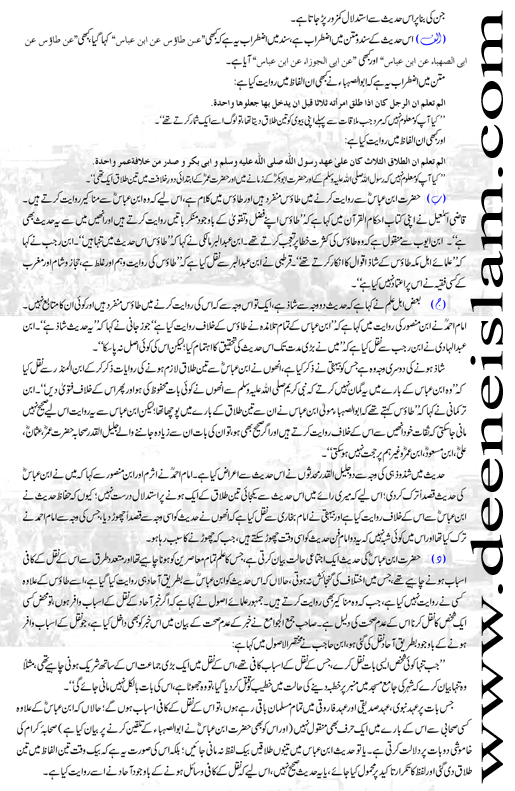 جن کی بنا پر اس حدیث سے استدلال کمزور پڑ جاتا ہے۔
(الف) اس حدیث کے سند و متن میں اضطراب ہے، سند میں اضطراب یہ ہے کہ کبھی "عن طاؤس عن ابن عباس" کہا گیا، کبھی "عن طاؤس عن
ابی الصهباء عن ابن عباس" اور کبھی "عن ابی الجوزاء عن ابن عباس" آیا ہے۔
متن میں اضطراب یہ ہے کہ ابوالصہباء نے کبھی ان الفاظ میں روایت کیا ہے:
الم تعلم ان الرجل كان اذا طلق امرأته ثلاثا قبل ان يدخل بها جعلوها واحدة.
"کیا آپ کو معلوم نہیں کہ مرد جب ملاقات سے پہلے اپنی بیوی کو تین طلاق دیتا تھا، تو لوگ اسے ایک شمار کرتے تھے"۔
اور کبھی ان الفاظ میں روایت کیا ہے:
الم تعلم ان الطلاق الثلاث كان على عهد رسول الله صلى الله عليه وسلم و ابى بكر و صدر من خلافة عمر واحدة.
"کیا آپ کو معلوم نہیں کہ رسول اللہ صلی اللہ علیہ وسلم کے اور حضرت ابوبکرؓ کے زمانے میں اور حضرت عمرؓ کے ابتدائی دور خلافت میں تین طلاق ایک تھی"۔
(ب) حضرت ابن عباسؓ سے روایت کرنے میں طاؤس منفرد ہیں اور طاؤس میں کلام ہے، اس لیے کہ وہ ابن عباسؓ سے مناکیر روایت کرتے ہیں۔
قاضی اسمٰعیل نے اپنی کتاب احکام القرآن میں کہا ہے کہ "طاؤس اپنے فضل و تقویٰ کے باوجود منکر باتیں روایت کرتے ہیں اور انھیں میں سے یہ حدیث بھی
ہے"۔ ابن ایوب سے منقول ہے کہ وہ طاؤس کی کثرت خطا پر تعجب کرتے تھے۔ ابن عبدالبر مالکی نے کہا کہ "طاؤس اس حدیث میں تنہا ہیں"۔ ابن رجب نے کہا
کہ "علمائے اہل مکہ طاؤس کے شاذ اقوال کا انکار کرتے تھے"۔ قرطبی نے ابن عبدالبر سے نقل کیا ہے کہ "طاؤس کی روایت وہم اور غلط ہے، حجاز و شام اور مغرب
کے کسی فقیہ نے اس پر اعتماد نہیں کیا ہے"۔
(ج) بعض اہل علم نے کہا ہے کہ حدیث دو وجہ سے شاذ ہے، ایک تو اس وجہ سے کہ اس کی روایت کرنے میں طاؤس منفرد ہیں اور کوئی ان کا متابع نہیں۔
امام احمدؒ نے ابن منصور کی روایت میں کہا ہے کہ "ابن عباسؓ کے تمام تلامذہ نے طاؤس کے خلاف روایت کیا ہے" جوزجانی نے کہا ہے کہ "یہ حدیث شاذ ہے"۔ ابن
عبدالہادی نے ابن رجب سے نقل کیا ہے کہ "میں نے بڑی مدت تک اس حدیث کی تحقیق کا اہتمام کیا؛ لیکن اس کی کوئی اصل نہ پا سکا"۔
شاذ ہونے کی دوسری وجہ وہ ہے جس کو بیہقی نے ذکر کیا ہے، انھوں نے ابن عباسؓ سے تین طلاق لازم ہونے کی روایات ذکر کر کے ابن المنذر سے نقل کیا
ہے کہ "وہ ابن عباسؓ کے بارے میں یہ گمان نہیں کرتے کہ نبی کریم صلی اللہ علیہ وسلم سے انھوں نے کوئی بات محفوظ کی ہو اور پھر اس کے خلاف فتویٰ دیں"۔ ابن
ترکمانی نے کہا کہ "طاؤس کہتے تھے کہ ابوالصہباء مولیٰ ابن عباسؓ نے ان سے تین طلاق کے بارے میں پوچھا تھا؛ لیکن ابن عباسؓ سے یہ روایت اس لیے صحیح نہیں
مانی جا سکتی کہ ثقات خود انھیں سے اس کے خلاف روایت کرتے ہیں اور اگر صحیح بھی ہو، تو ان کی بات ان سے زیادہ جاننے والے جلیل القدر صحابہ حضرت عمرؓ، عثمانؓ،
علیؓ، ابن مسعودؓ، ابن عمرؓ وغیرہم پر حجت نہیں ہو سکتی"۔
حدیث میں شذوذ ہی کی وجہ سے دو جلیل القدر محدثوں نے اس حدیث سے اعراض کیا ہے۔ امام احمدؒ نے اثرم اور ابن منصور سے کہا کہ میں نے ابن عباسؓ
کی حدیث قصداً ترک کر دی؛ اس لیے کہ میری رائے میں اس حدیث سے یکجائی تین طلاق کے ایک ہونے پر استدلال درست نہیں؛ کیوں کہ حفاظ حدیث نے
ابن عباسؓ سے اس کے خلاف روایت کیا ہے اور بیہقی نے امام بخاری سے نقل کیا ہے کہ انھوں نے حدیث کو اسی وجہ سے قصداً چھوڑ دیا، جس کی وجہ سے امام احمد نے
ترک کیا تھا اور اس میں کوئی شبہ نہیں کہ یہ دو امام فن حدیث کو اسی وقت چھوڑ سکتے ہیں، جب کہ چھوڑنے کا سبب رہا ہو۔
(د) حضرت ابن عباسؓ کی حدیث ایک اجتماعی حالت بیان کرتی ہے، جس کا علم تمام معاصرین کو ہونا چاہیے تھا اور متعدد طرق سے اس کے نقل کے کافی
اسباب ہونے چاہیے تھے، جس میں اختلاف کی گنجائش نہ ہوتی، حالاں کہ اس حدیث کو ابن عباسؓ سے بطریق آحاد ہی روایت کیا گیا ہے، اسے طاؤس کے علاوہ
کسی نے روایت نہیں کیا ہے، جب کہ وہ مناکیر بھی روایت کرتے ہیں۔ جمہور علمائے اصول نے کہا ہے کہ اگر خبر آحاد کے نقل کے اسباب وافر ہوں، تو محض کسی
ایک شخص کا نقل کرنا اس کے عدم صحت کی دلیل ہے۔ صاحب جمع الجوامع نے خبر کے عدم صحت کے بیان میں اس خبر کو بھی داخل کیا ہے، جو نقل کے اسباب وافر
ہونے کے باوجود بطریق آحاد نقل کی گئی ہو، ابن حاجب نے مختصر الاصول میں کہا ہے:
"جب تنہا کوئی شخص ایسی بات نقل کرے، جس کے نقل کے اسباب کافی تھے، اس کے نقل میں ایک بڑی جماعت اس کے ساتھ شریک ہونی چاہیے تھی، مثلاً
وہ تنہا بیان کرے کہ شہر کی جامع مسجد میں منبر پر خطبہ دینے کی حالت میں خطیب کو قتل کر دیا گیا، تو وہ جھوٹا ہے، اس کی بات بالکل نہیں مانی جائے گی"۔
جس بات پر عہد نبوی، عہد صدیقی اور عہد فاروقی میں تمام مسلمان باقی رہے ہوں، تو اس کے نقل کے کافی اسباب ہوں گے؛ حالاں کہ ابن عباسؓ کے علاوہ
کسی صحابی سے اس کے بارے میں ایک حرف بھی منقول نہیں (اور اس کو بھی حضرت ابن عباسؓ نے ابوالصہباء کے تلقین کرنے پر بیان کیا ہے) صحابۂ کرام کی
خاموشی دو بات پر دلالت کرتی ہے۔ یا تو حدیث ابن عباس میں تینوں طلاقیں بیک لفظ نہ مانی جائیں؛ بلکہ اس کی صورت یہ ہے کہ بیک وقت تین الفاظ میں تین
طلاق دی گئی اور لفظ کا تکرار تاکید پر محمول کیا جائے، یا یہ حدیث صحیح نہیں، اس لیے کہ نقل کے کافی وسائل ہونے کے باوجود آحاد نے اسے روایت کیا ہے۔
www.deeneislam.com